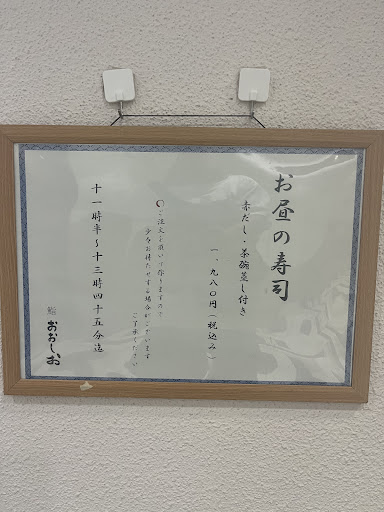 お昼の寿司
赤だし・茶碗蒸し付き
一、九八〇円（税込み）
ご注文を頂いて作りますので
少々お待たせする場合がございます
ご了承ください
十一時半～十三時四十五分迄
鮨 おおしお